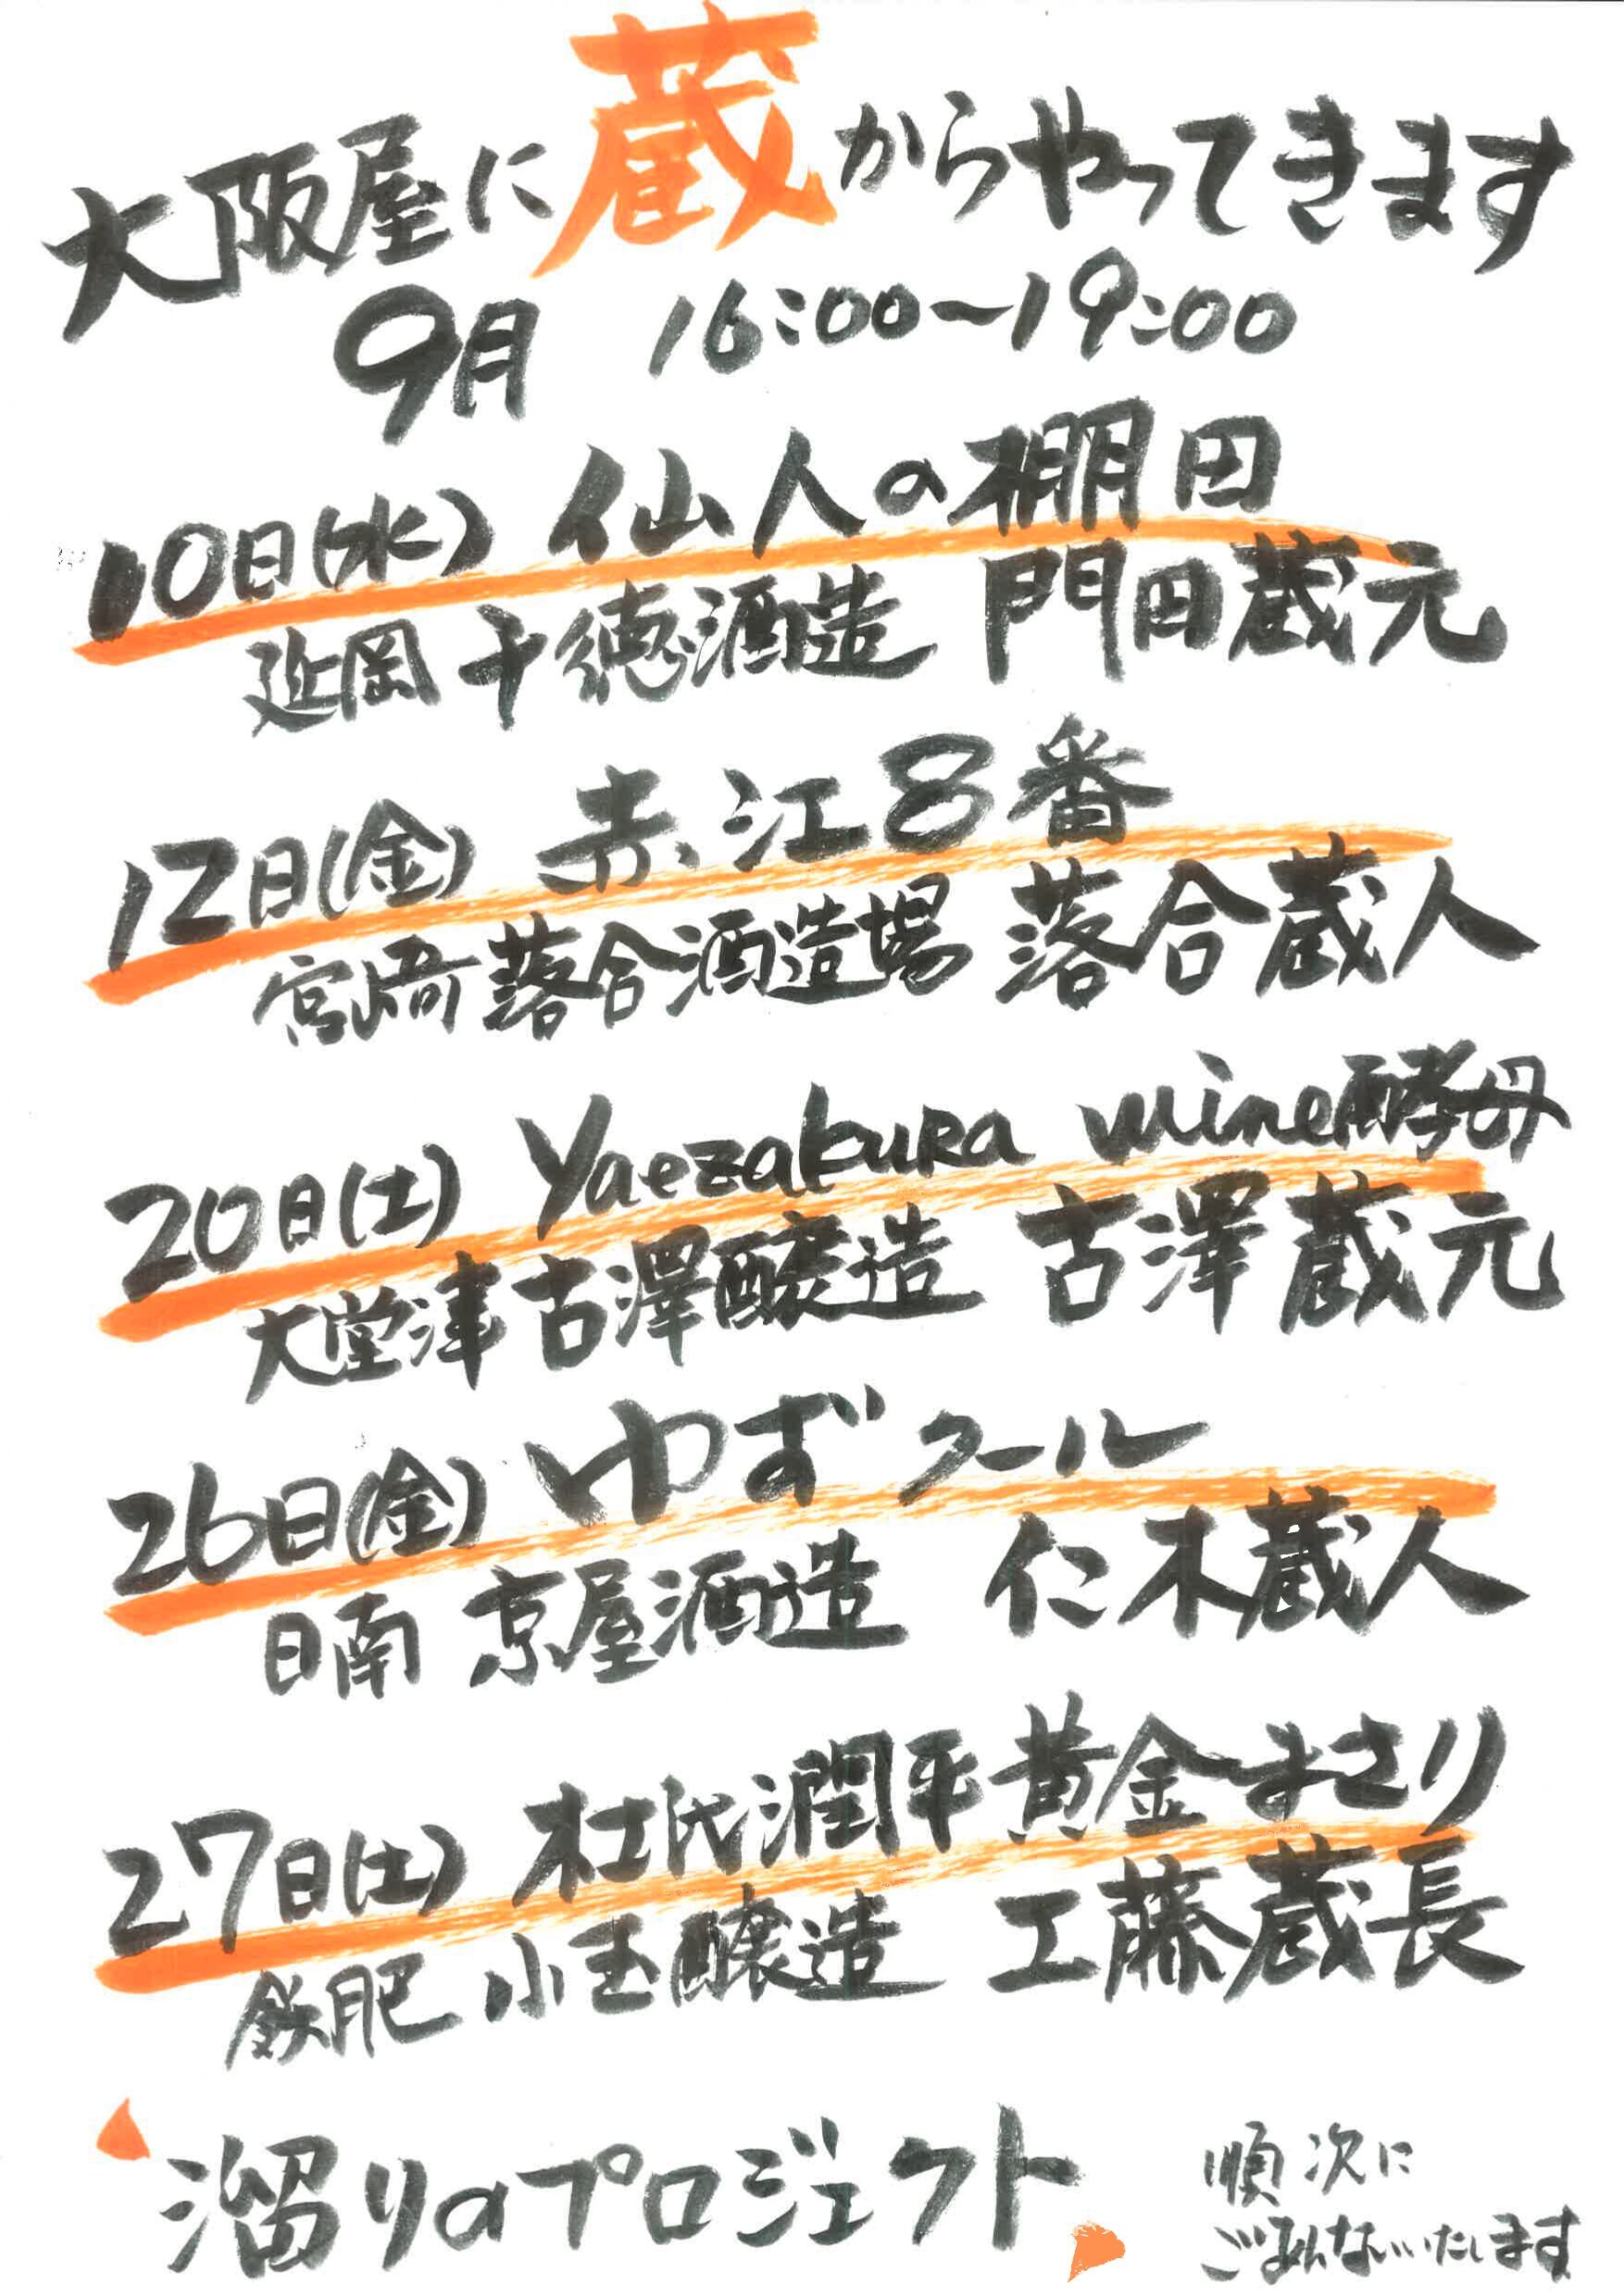 大阪屋に蔵からやってきます
9月 16:00～19:00
10日(水) 仙人の棚田
延岡 千徳酒造 門田蔵元
12日(金) 赤江8番
宮崎 落合酒造場 落合蔵人
20日(土) Yaezakura mine酵母
大堂津 古澤醸造 古澤蔵元
26日(金) ゆずクール
日南 京屋酒造 仁木蔵人
27日(土) 杜氏潤平 黄金まさり
飫肥 小玉醸造 工藤蔵長
溜りのプロジェクト
順次に
ごあんないいたします